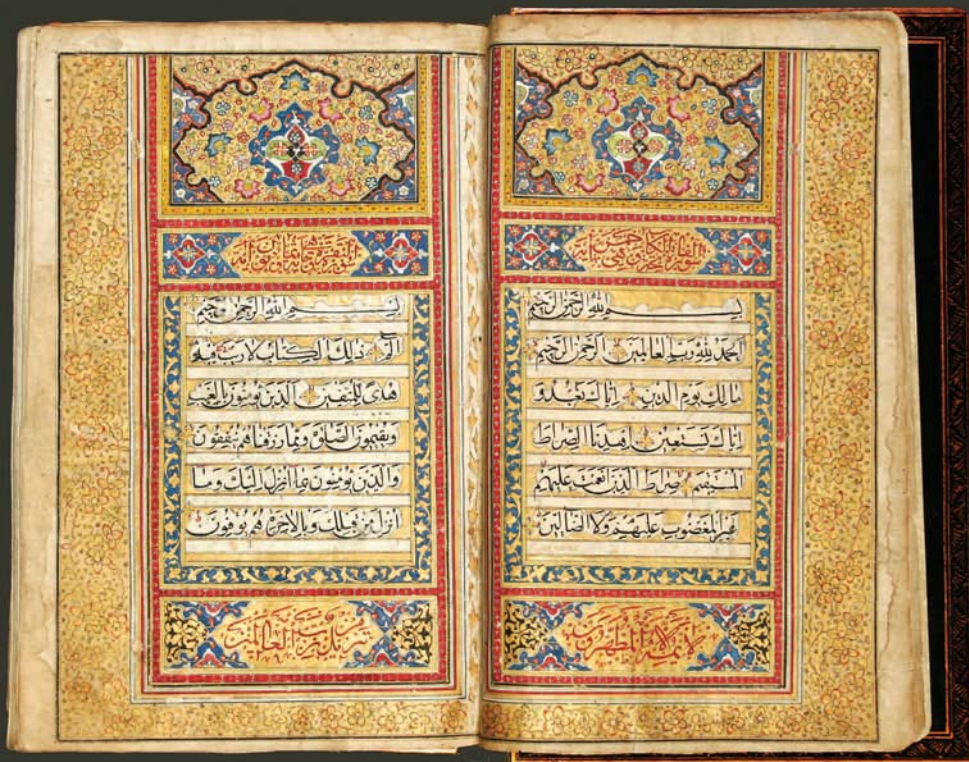 بسم الله الرحمن الرحيم
الحمد لله رب العالمين الرحمن الرحيم
مالك يوم الدين اياك نعبد و
اياك نستعين اهدنا الصراط
المستقيم صراط الذين انعمت عليهم
غير المغضوب عليهم ولا الضالين
لا يمسه الا المطهرون
بسم الله الرحمن الرحيم
الم ذلك الكتاب لا ريب فيه
هدى للمتقين الذين يؤمنون بالغيب
ويقيمون الصلوة ومما رزقناهم ينفقون
والذين يؤمنون بما انزل اليك وما
انزل من قبلك وبالاخرة هم يوقنون
تنزيل من رب العالمين